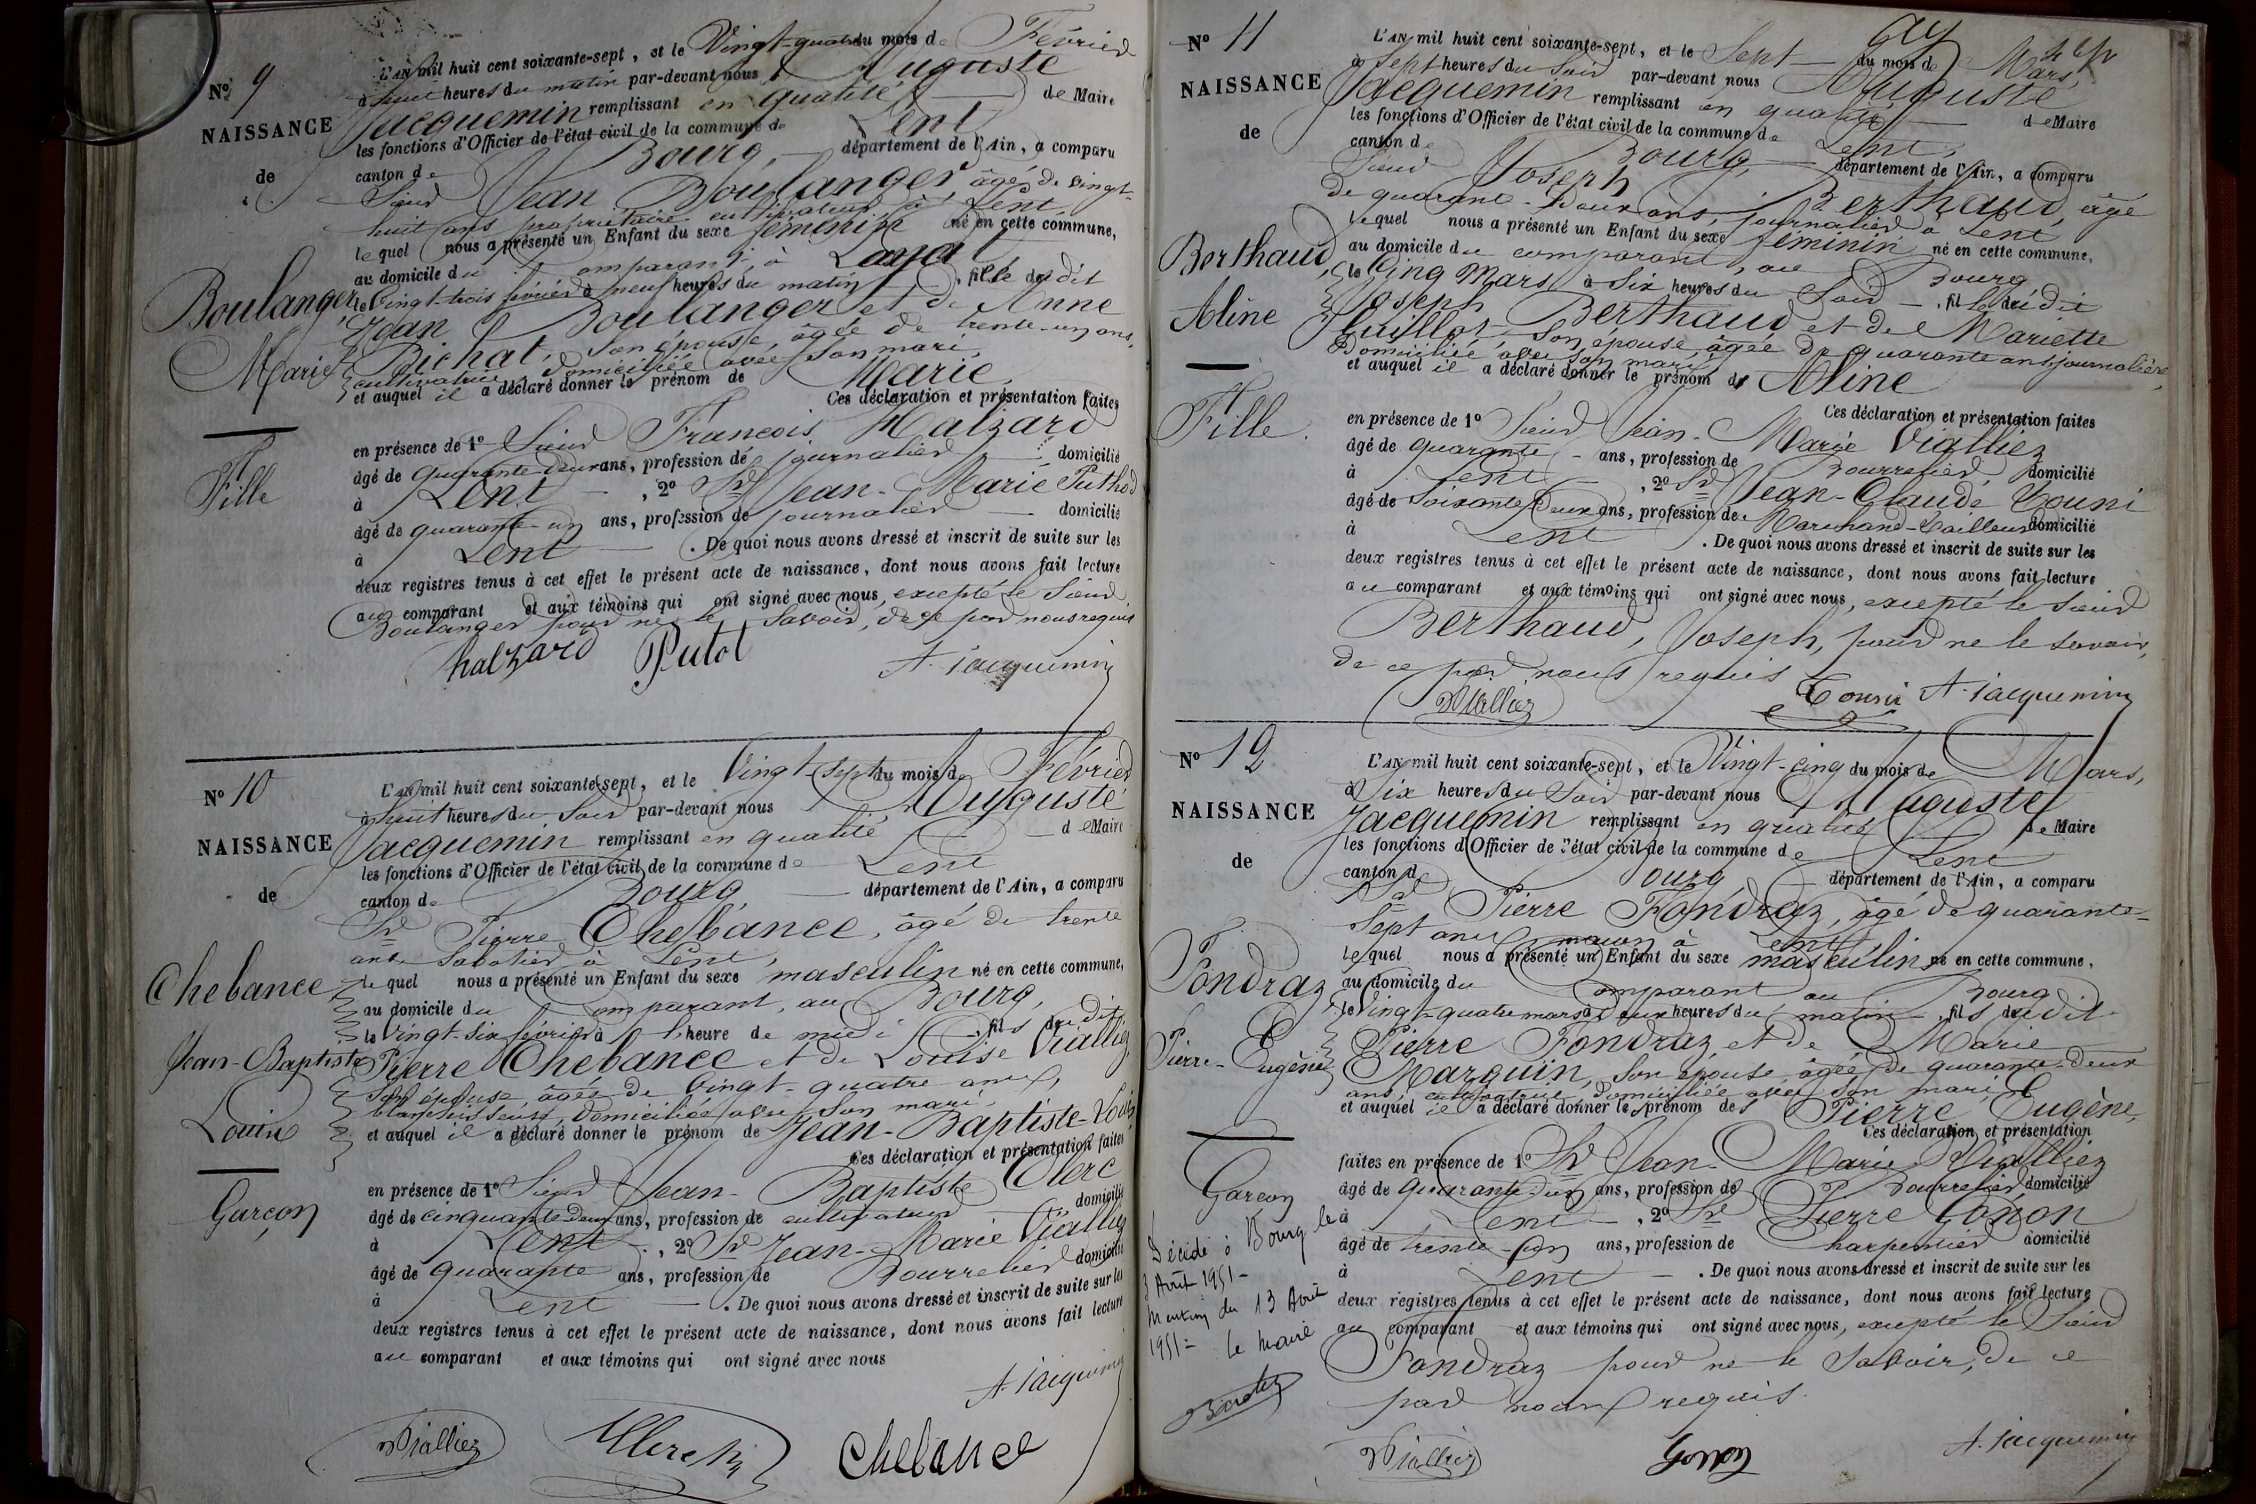 N° 9
NAISSANCE
de
Boulanger
Marie
Fille
L'AN mil huit cent soixante-sept, et le Vingt-quatre du mois de Février
à huit heures du matin par-devant nous Auguste
Jacquemin remplissant en qualité de Maire
les fonctions d'Officier de l'état civil de la commune de Lent
canton de Bourg, département de l'Ain, a comparu
Sieur Jean Boulanger, âgé de vingt-
huit ans propriétaire cultivateur à Lent
lequel nous a présenté un Enfant du sexe féminin né en cette commune,
au domicile du comparant, à Laya
le Vingt-trois février à neuf heures du matin, fille dudit
Jean Boulanger et de Anne
Bichat, son épouse, âgée de trente-un ans,
cultivatrice, domiciliée avec son mari,
et auquel il a déclaré donner le prénom de Marie
Ces déclaration et présentation faites
en présence de 1° Sieur François Halzard
âgé de quarante-deux ans, profession de journalier domicilié
à Lent, 2° Sr Jean-Marie Puthod
âgé de quarante-un ans, profession de journalier domicilié
à Lent. De quoi nous avons dressé et inscrit de suite sur les
deux registres tenus à cet effet le présent acte de naissance, dont nous avons fait lecture
au comparant et aux témoins qui ont signé avec nous, excepté le Sieur
Boulanger pour ne le savoir, de ce par nous requis
halzard Putot A. Jacquemin
N° 10
NAISSANCE
de
Chebance
Jean-Baptiste
Louis
Garçon
L'AN mil huit cent soixante-sept, et le Vingt-sept du mois de Février
à huit heures du soir par-devant nous Auguste
Jacquemin remplissant en qualité de Maire
les fonctions d'Officier de l'état civil de la commune de Lent
canton de Bourg, département de l'Ain, a comparu
Sr Pierre Chebance, âgé de trente
ans sabotier à Lent,
lequel nous a présenté un Enfant du sexe masculin né en cette commune,
au domicile du comparant, au Bourg,
le Vingt-six février à l'heure de midi, fils dudit
Pierre Chebance et de Louise Vialliez
son épouse, âgée de vingt-quatre ans,
blanchisseuse, domiciliée avec son mari
et auquel il a déclaré donner le prénom de Jean-Baptiste-Louis
Ces déclaration et présentation faites
en présence de 1° Sieur Jean-Baptiste Clerc
âgé de cinquante-deux ans, profession de cultivateur domicilié
à Lent, 2° Sr Jean-Marie Vialliez
âgé de quarante ans, profession de Bourrelier domicilié
à Lent. De quoi nous avons dressé et inscrit de suite sur les
deux registres tenus à cet effet le présent acte de naissance, dont nous avons fait lecture
au comparant et aux témoins qui ont signé avec nous
A. Jacquemin
Vialliez Clerc Chebance
N° 11
NAISSANCE
de
Berthaud
Aline
Fille
L'AN mil huit cent soixante-sept, et le Sept du mois de Mars,
à Sept heures du soir par-devant nous Auguste
Jacquemin remplissant en qualité de Maire
les fonctions d'Officier de l'état civil de la commune de Lent,
canton de Bourg, département de l'Ain, a comparu
Sieur Joseph Berthaud, âgé
de quarante-deux ans, journalier à Lent
lequel nous a présenté un Enfant du sexe féminin né en cette commune,
au domicile du comparant, au Bourg
le Cinq Mars à Six heures du Soir, fille dudit
Joseph Berthaud et de Mariette
Guillot, son épouse âgée de quarante ans, journalière,
domiciliée avec son mari,
et auquel il a déclaré donner le prénom de Aline
Ces déclaration et présentation faites
en présence de 1° Sieur Jean-Marie Vialliez
âgé de quarante ans, profession de Bourrelier, domicilié
à Lent, 2° Sr Jean-Claude Touni
âgé de Soixante-Deux ans, profession de Marchand-Tailleur domicilié
à Lent. De quoi nous avons dressé et inscrit de suite sur les
deux registres tenus à cet effet le présent acte de naissance, dont nous avons fait lecture
au comparant et aux témoins qui ont signé avec nous, excepté le Sieur
Berthaud, Joseph, pour ne le savoir,
de ce par nous requis
Vialliez A. Jacquemin
N° 12
NAISSANCE
de
Fondraz
Pierre-Eugène
Garçon
Décédé à Bourg le
3 Août 1951-
Mention du 13 Août
1951=
le maire
L'AN mil huit cent soixante-sept, et le Vingt-cinq du mois de Mars,
à Six heures du Soir par-devant nous Auguste
Jacquemin remplissant en qualité de Maire
les fonctions d'Officier de l'état civil de la commune de Lent
canton de Bourg, département de l'Ain, a comparu
Sr Pierre Fondraz, âgé de quarante-
Sept ans, maçon à Lent,
lequel nous a présenté un Enfant du sexe masculin né en cette commune,
au domicile du Comparant au Bourg
le Vingt-quatre mars à deux heures du matin, fils dudit
Pierre Fondraz et de Marie
Marquin, son épouse âgée de quarante-deux
ans, domiciliée avec son mari,
et auquel il a déclaré donner les prénom des Pierre Eugène,
Ces déclaration et présentation
faites en présence de 1° Sr Jean-Marie Vialliez
âgé de quarante ans, profession de Bourrelier domicilié
à Lent, 2° Sr Pierre Gonon
âgé de trente-cinq ans, profession de Charpentier domicilié
à Lent. De quoi nous avons dressé et inscrit de suite sur les
deux registres tenus à cet effet le présent acte de naissance, dont nous avons fait lecture
au comparant et aux témoins qui ont signé avec nous, excepté le Sieur
Fondraz pour ne le savoir, de ce
par nous requis.
Vialliez Gonon A. Jacquemin